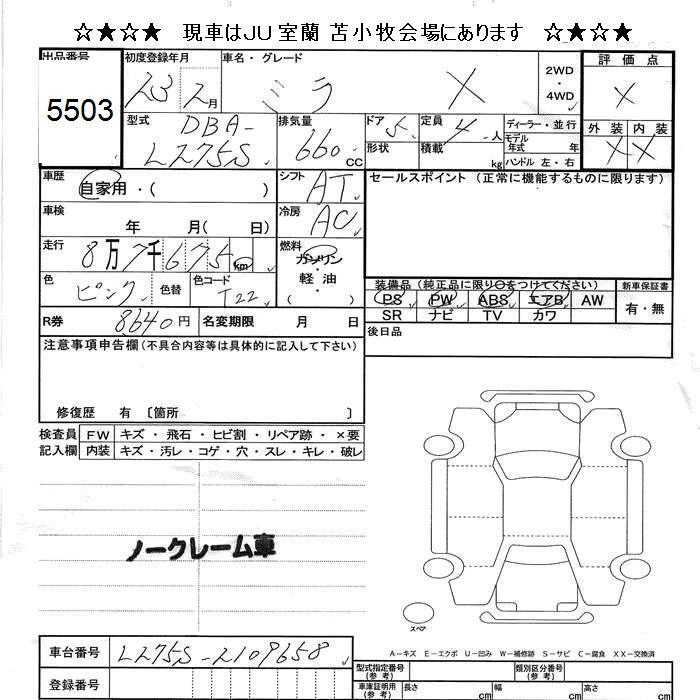 ☆★☆★　現車はJU室蘭 苫小牧会場にあります　☆★☆★
出品番号
5503
初度登録年月
23 2月
車名・グレード
ミラ X
2WD
・
4WD
評価点
X
外装 内装
X X
型式
DBA-
L275S
排気量
660 CC
ドア 5
形状
定員 4 人
積載 kg
ディーラー・並行
モデル年式 年
ハンドル 左・右
車歴
自家用・( )
シフト
AT
車検
年 月( 日)
冷房
AC
走行
8万7千675km
燃料
ガソリン
・
軽油
( )
色
ピンク
色替
色コード
T22
R券
8640円
名変期限 月 日
セールスポイント (正常に機能するものに限ります)
装備品(純正品に限り○をつけてください)
新車保証書
PS PW ABS エアB AW
SR ナビ TV カワ
有・無
後日品
注意事項申告欄(不具合内容等は具体的に記入して下さい)
修復歴 有 〔箇所 〕
検査員
記入欄
FW キズ・飛石・ヒビ割・リペア跡・×要
内装 キズ・汚レ・コゲ・穴・スレ・キレ・破レ
ノークレーム車
スペア
A-キズ E-エクボ U-凹み W-補修跡 S-サビ C-腐食 XX-交換済
車台番号
L275S-2109658
登録番号
型式指定番号
(参考)
類別区分番号
(参考)
車庫証明用
(参考)
長さ cm
幅 cm
高さ cm